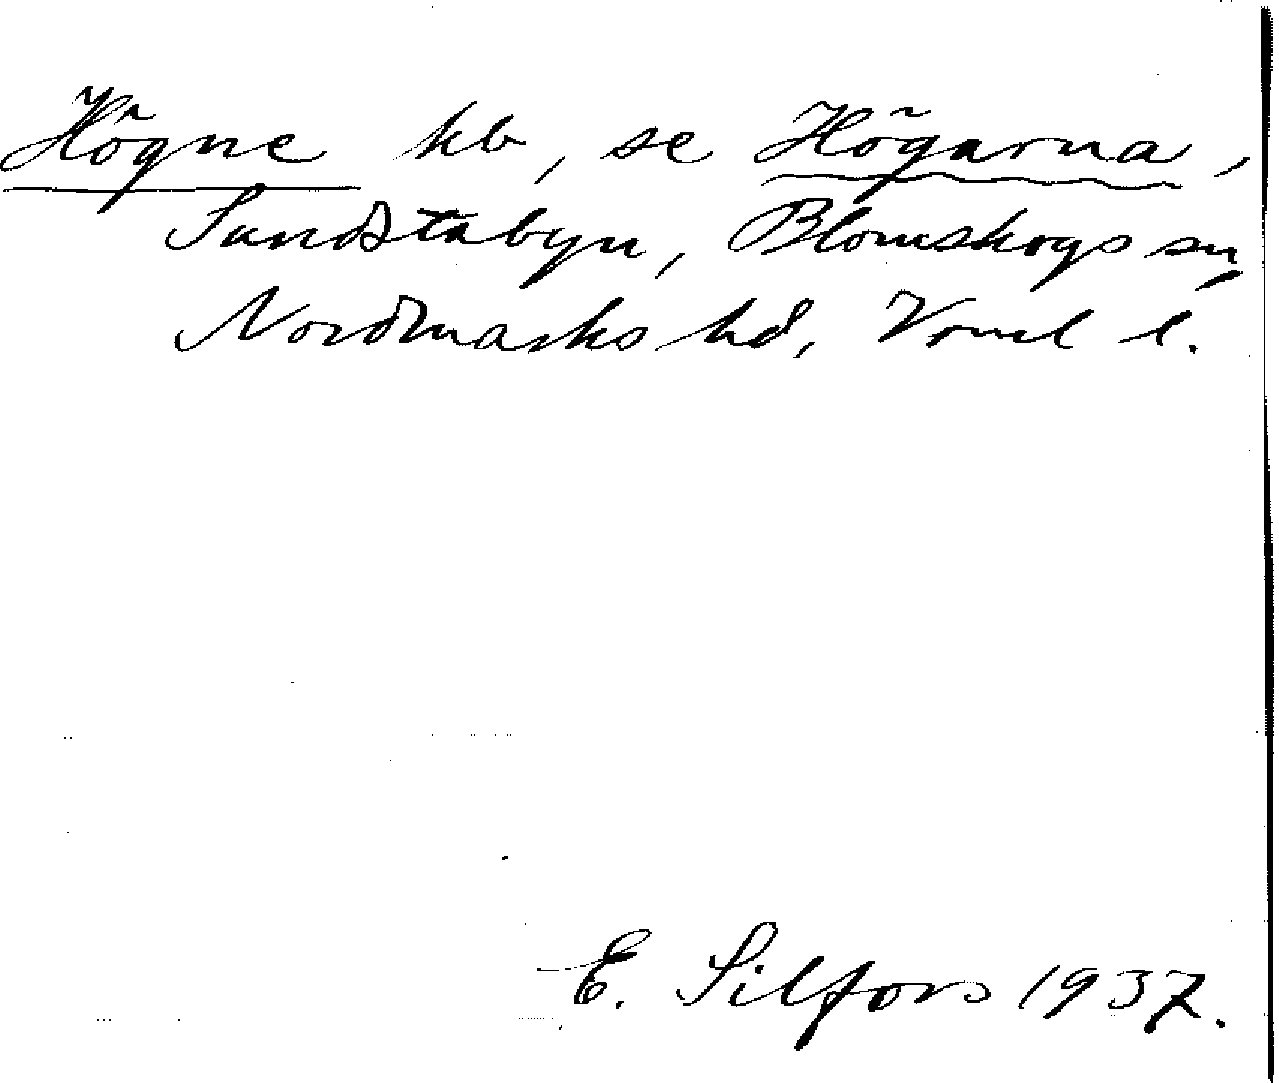 Högne kb, se Högarna,
Sandstabyn, Blomskogs sn,
Nordmarks hd, Vrml l.
E. Silfors 1937.